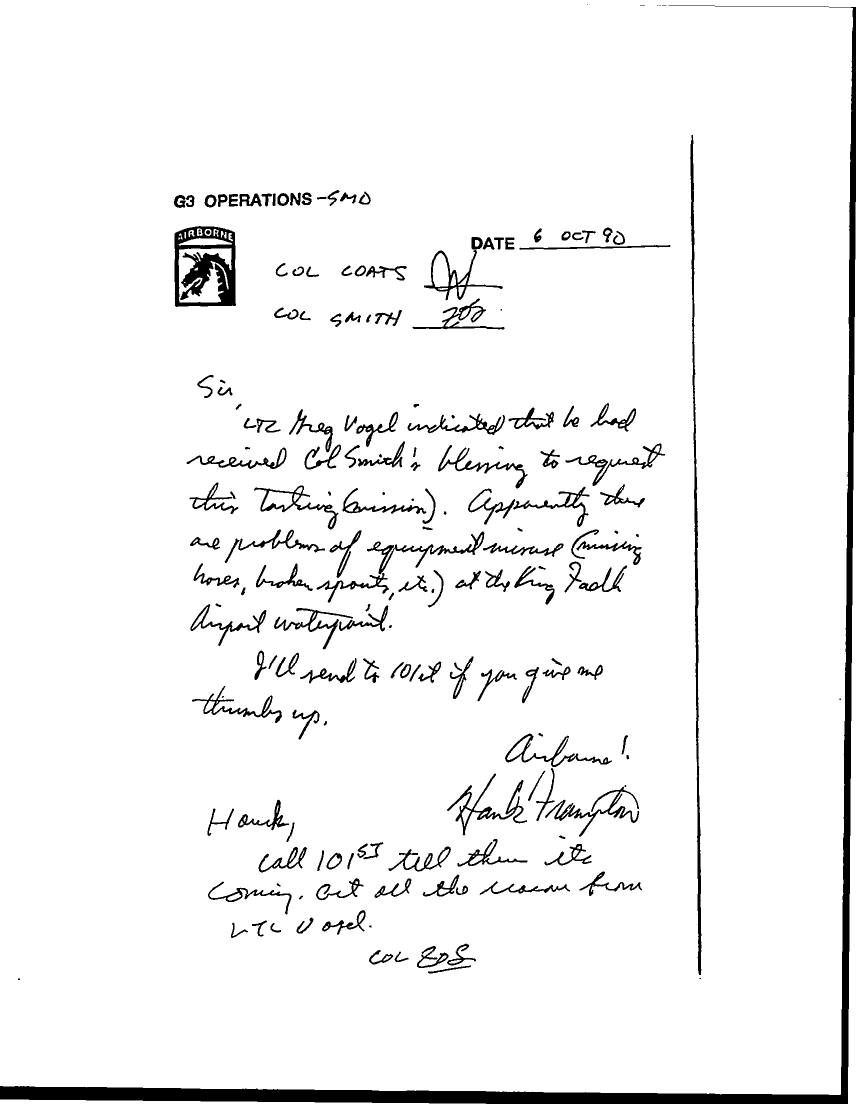 G3 OPERATIONS -SMO
AIRBORNE
DATE 6 OCT 90
COL COATS
COL SMITH
Sir,
LTC Greg Vogel indicated that he had
received Col Smith's blessing to request
this tasking (mission). Apparently there
are problems of equipment misuse (missing
hoses, broken spouts, etc.) at the King Fadh
Airport waterpoint.
I'll send to 101st if you give me
thumbs up.
Airborne!
Hank Frampton
Hank,
Call 101ST tell them its
coming. Get all the from
LTC Vogel.
COL